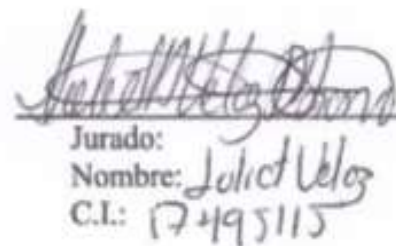 Jurado:
Nombre: Juliet Veloz
C.I.: 17495115